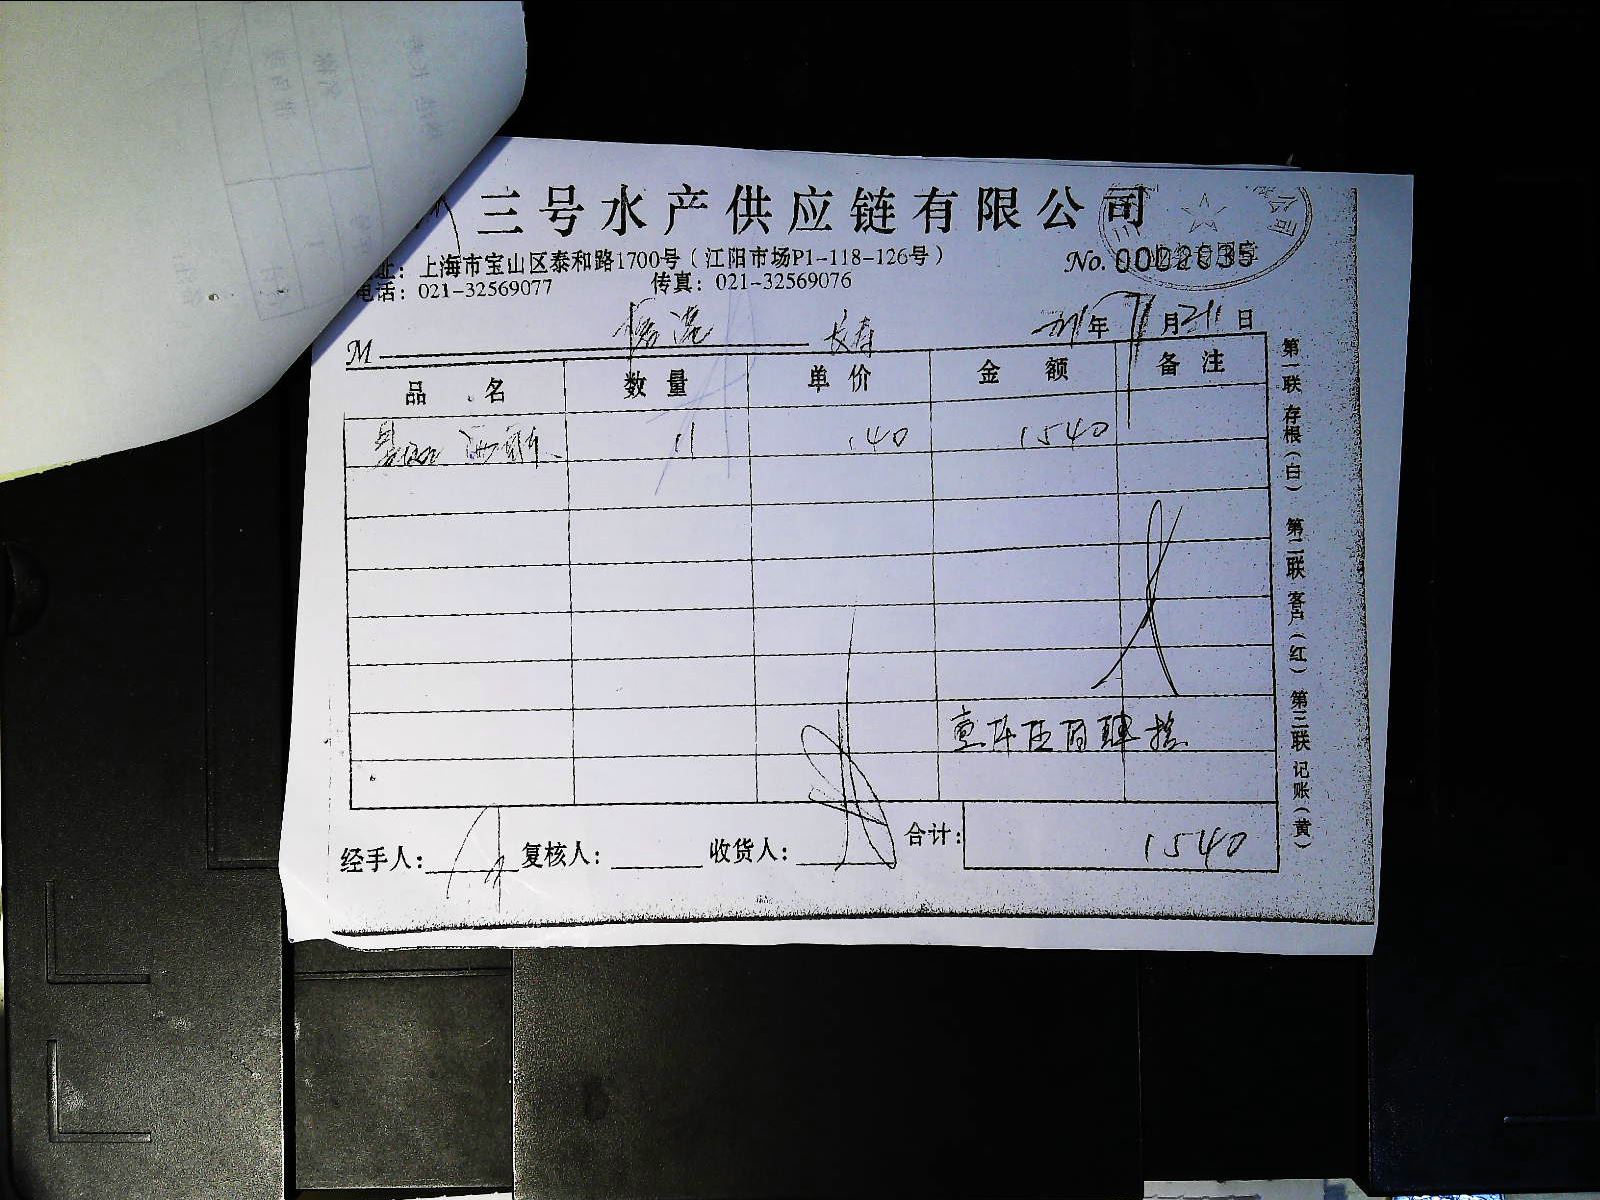 三号水产供应链有限公司
址：上海市宝山区泰和路1700号（江阳市场P1-118-126号）
No. 0002035
电话：021-32569077 传真：021-32569076
M 长寿 年 11月21日
品名 数量 单价 金额 备注
11 140 1540
壹仟伍佰肆拾
经手人： 复核人： 收货人： 合计： 1540
第一联 存根（白） 第二联 客户（红） 第三联 记账（黄）